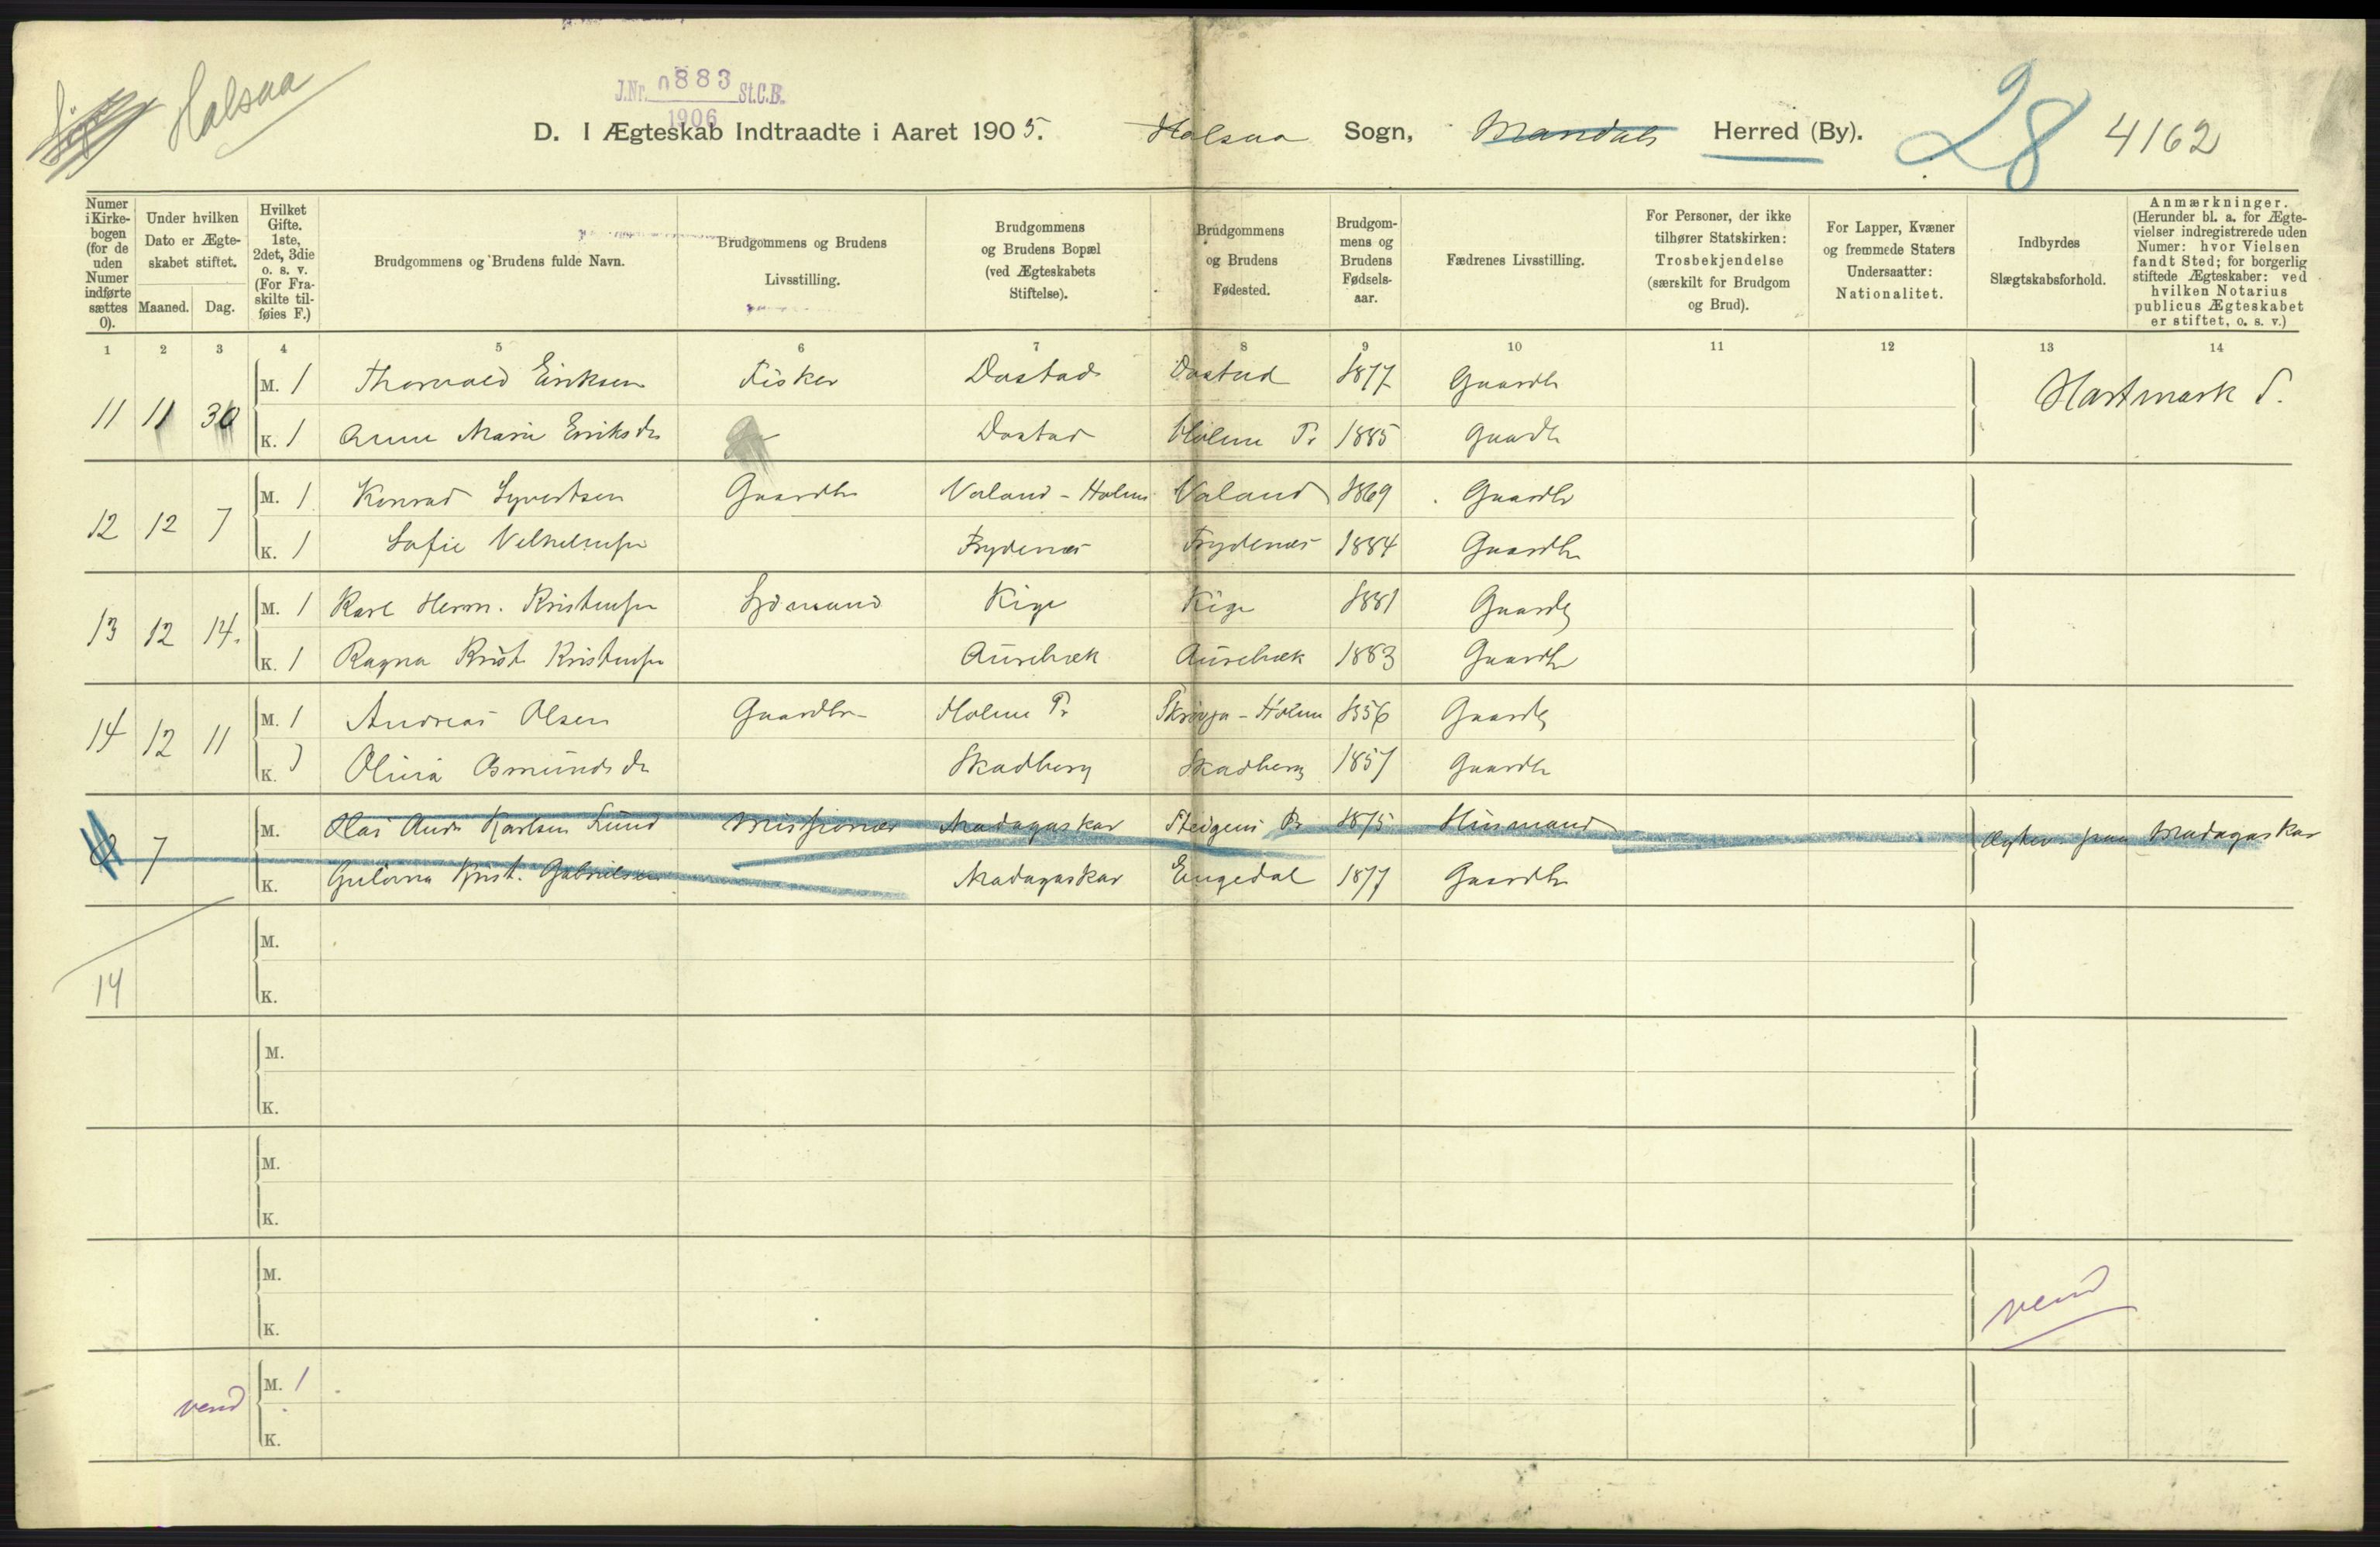 Halsaa
J.Nr. 0883 St.C.B.
1906
D. I Ægteskab Indtraadte i Aaret 1905. Halsaa Sogn, Mandals Herred (By). 28 4162
Numer i Kirkebogen (for de uden Numer indførte sættes 0).
Under hvilken Dato er Ægteskabet stiftet.
Maaned. Dag.
Hvilket Gifte. 1ste, 2det, 3die o. s. v. (For Fraskilte tilføies F.)
Brudgommens og Brudens fulde Navn.
Brudgommens og Brudens Livsstilling.
Brudgommens og Brudens Bopæl (ved Ægteskabets Stiftelse).
Brudgommens og Brudens Fødested.
Brudgommens og Brudens Fødselsaar.
Fædrenes Livsstilling.
For Personer, der ikke tilhører Statskirken: Trosbekjendelse (særskilt for Brudgom og Brud).
For Lapper, Kvæner og fremmede Staters Undersaatter: Nationalitet.
Indbyrdes Slægtskabsforhold.
Anmærkninger. (Herunder bl. a. for Ægtevielser indregistrerede uden Numer: hvor Vielsen fandt Sted; for borgerlig stiftede Ægteskaber: ved hvilken Notarius publicus Ægteskabet er stiftet, o. s. v.)
1 2 3 4 5 6 7 8 9 10 11 12 13 14
11 11 30 M. 1 Thorvald Eriksen Fisker Dastad Dastad 1877 Gaardb Hartmark S.
K. 1 Anne Marie Eriksdr Dastad Holme Pr 1885 Gaardb
12 12 7 M. 1 Konrad Syvertsen Gaardbr Valand - Holme Valand 1869 Gaardbr
K. 1 Sofie Vilhelmsen Frydenæs Frydenæs 1884 Gaardbr
13 12 14. M. 1 Karl Herm. Kristensen Sømand Kige Kige 1881 Gaardb
K. 1 Ragna Krist Kristensen Aurebæk Aurebæk 1883 Gaardbr
14 12 11 M. 1 Andreas Olsen Gaardbr Holme Pr Skrøvja - Holme 1856 Gaardb
K. 1 Olivia Osmundsdr Skadberg Skadberg 1857 Gaardb
0 7 M. Olai Andr Karlsen Lund Missionær Madagaskar Steigens Pr 1875 Husmand Ægtev. paa Madagaskar
K. Gulovna Krist. Gabrielsen Madagaskar Engedal 1877 Gaardbr
M.
14 K.
M.
K.
M.
K.
M.
K. vend
vend M. 1
K.